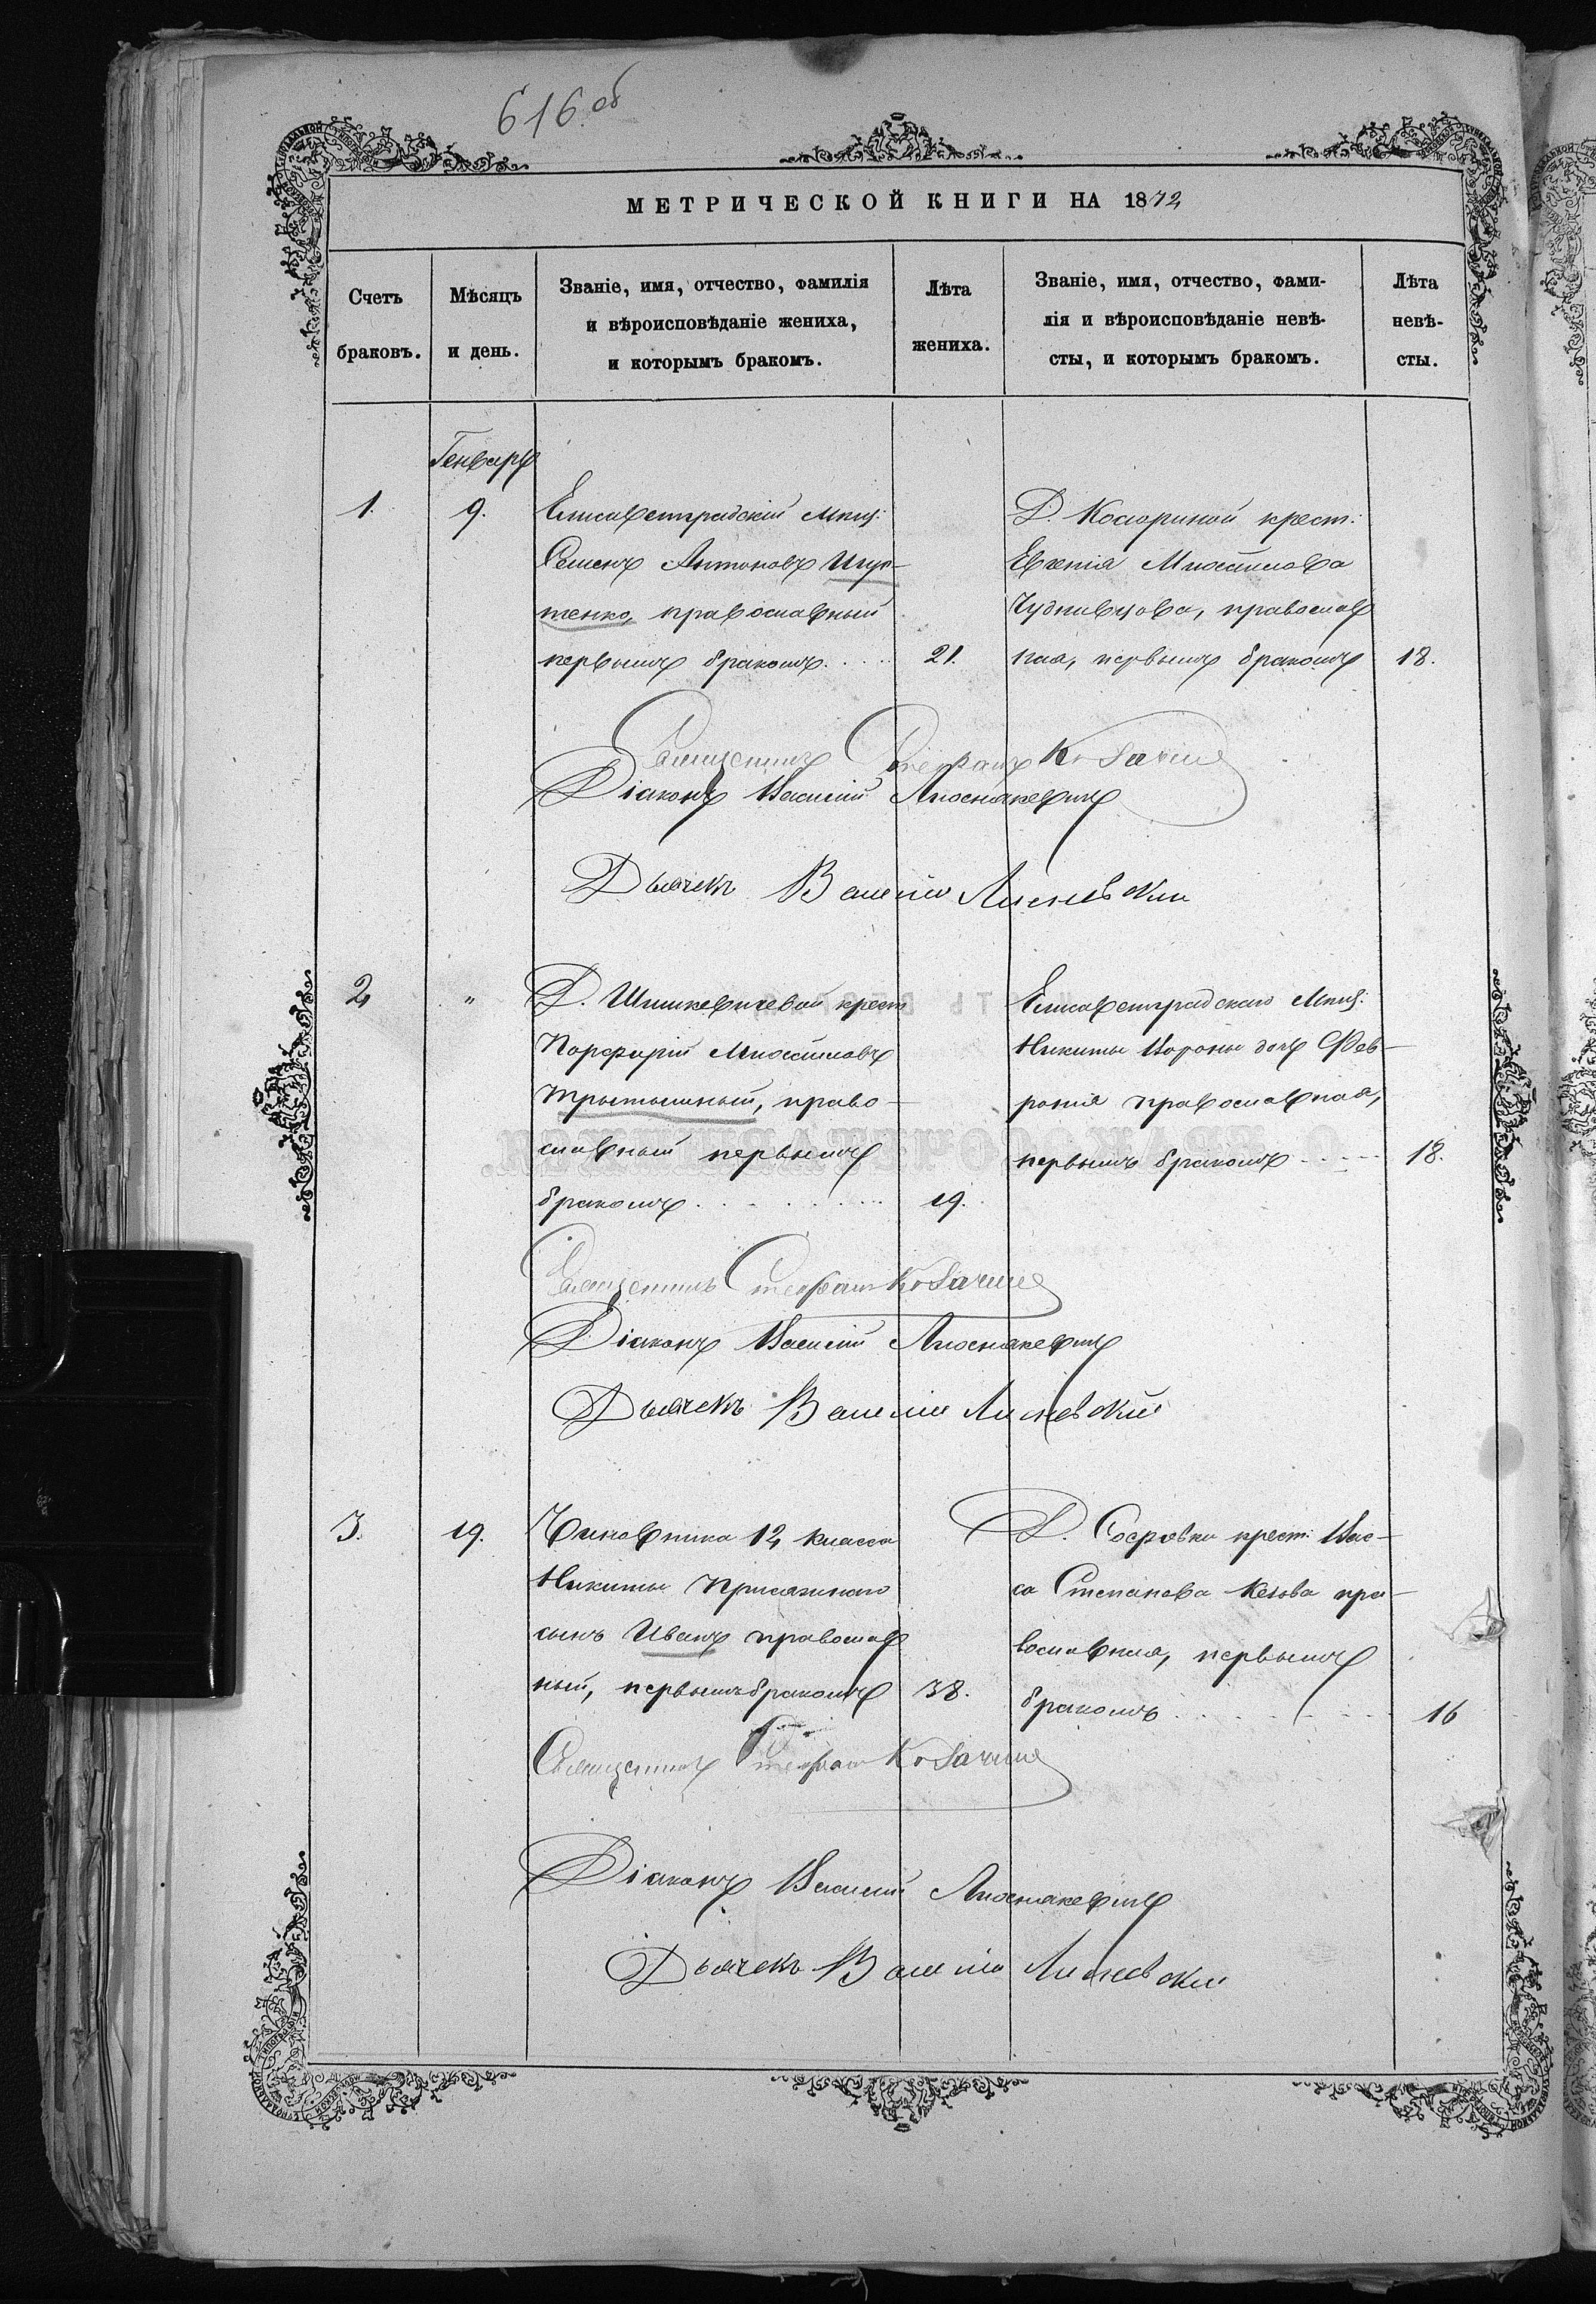 616 об
МЕТРИЧЕСКОЙ КНИГИ НА 1872
Счетъ браковъ.
Мѣсяцъ и день.
Званіе, имя, отчество, фамилія
и вѣроисповѣданіе жениха,
и которымъ бракомъ.
Лѣта жениха.
Званіе, имя, отчество, фами-
лія и вѣроисповѣданіе невѣ-
сты, и которымъ бракомъ.
Лѣта невѣ-
сты.
Генварь
1. 9.
Елисаветградскій мѣщ:
Семенъ Антоновъ
тенко, православный
первымъ бракомъ. 21.
Д. Косюриной крест:
Евгенія
православ
ная, первымъ бракомъ 18.
Священникъ Стефанъ Козачин
Діаконъ Василій
Дьячекъ Василій Лисневскій
2 "
Д. Шишкевичевой крест
Порфирій
право-
славный первымъ
бракомъ 19.
Елисаветградскаго мѣщ:
Никиты Вороны дочь Фев-
ронія православная,
первымъ бракомъ 18.
Священникъ Стефанъ Козачин
Діаконъ Василій
Дьячекъ Василій Лисневскій
3. 19.
Чиновника 12 класса
Никиты Присяжнаго
сынъ Иванъ православ
ный, первымъ бракомъ 38.
Д. крест: Вас-
са Степанова пра-
вославная, первымъ
бракомъ 16
Священникъ Стефанъ Козачин
Діаконъ Василій
Дьячекъ Василій Лисневскій